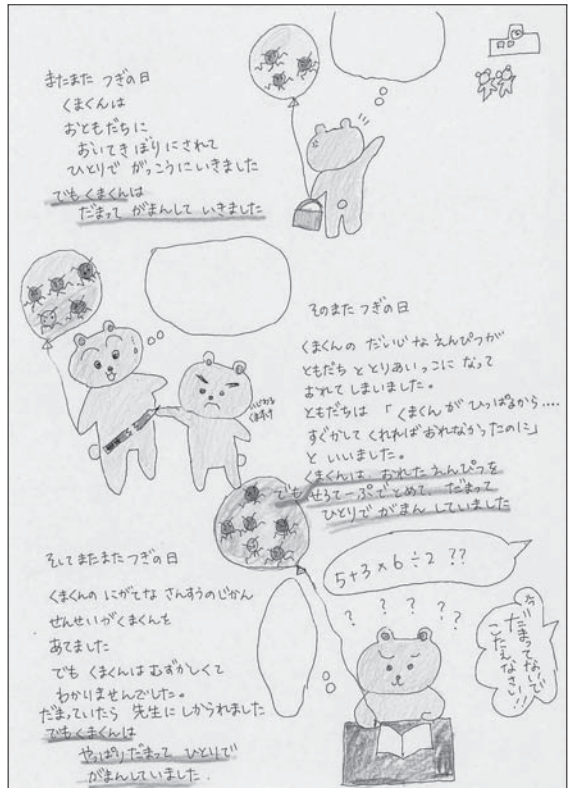 またまた つぎの日
くまくんは
おともだちに
おいてきぼりにされて
ひとりで がっこうにいきました
でもくまくんは
だまって がまんして いきました
そのまた つぎの日
くまくんの だいじな えんぴつが
ともだち と とりあいっこに なって
おれて しまいました。
ともだちは 「くまくん が ひっぱるから‥‥
すぐかして くれれば おれなかったのに」
と いいました。
くまくんは、おれた えんぴつを
でも せろてーぷで とめて、だまって
ひとりで がまん していました
いじわる
そして またまた つぎの日
くまくんの にがてな さんすうの じかん
せんせいが くまくんを
あてました
でも くまくんは むずかしくて
わかりませんでした。
だまっていたら 先生に しかられました
でもくまくんは
やっぱり だまって ひとりで
がまんしていました.
5+3×6÷2 ??
? ? ? ? ??
だまってないで
こたえなさい!!